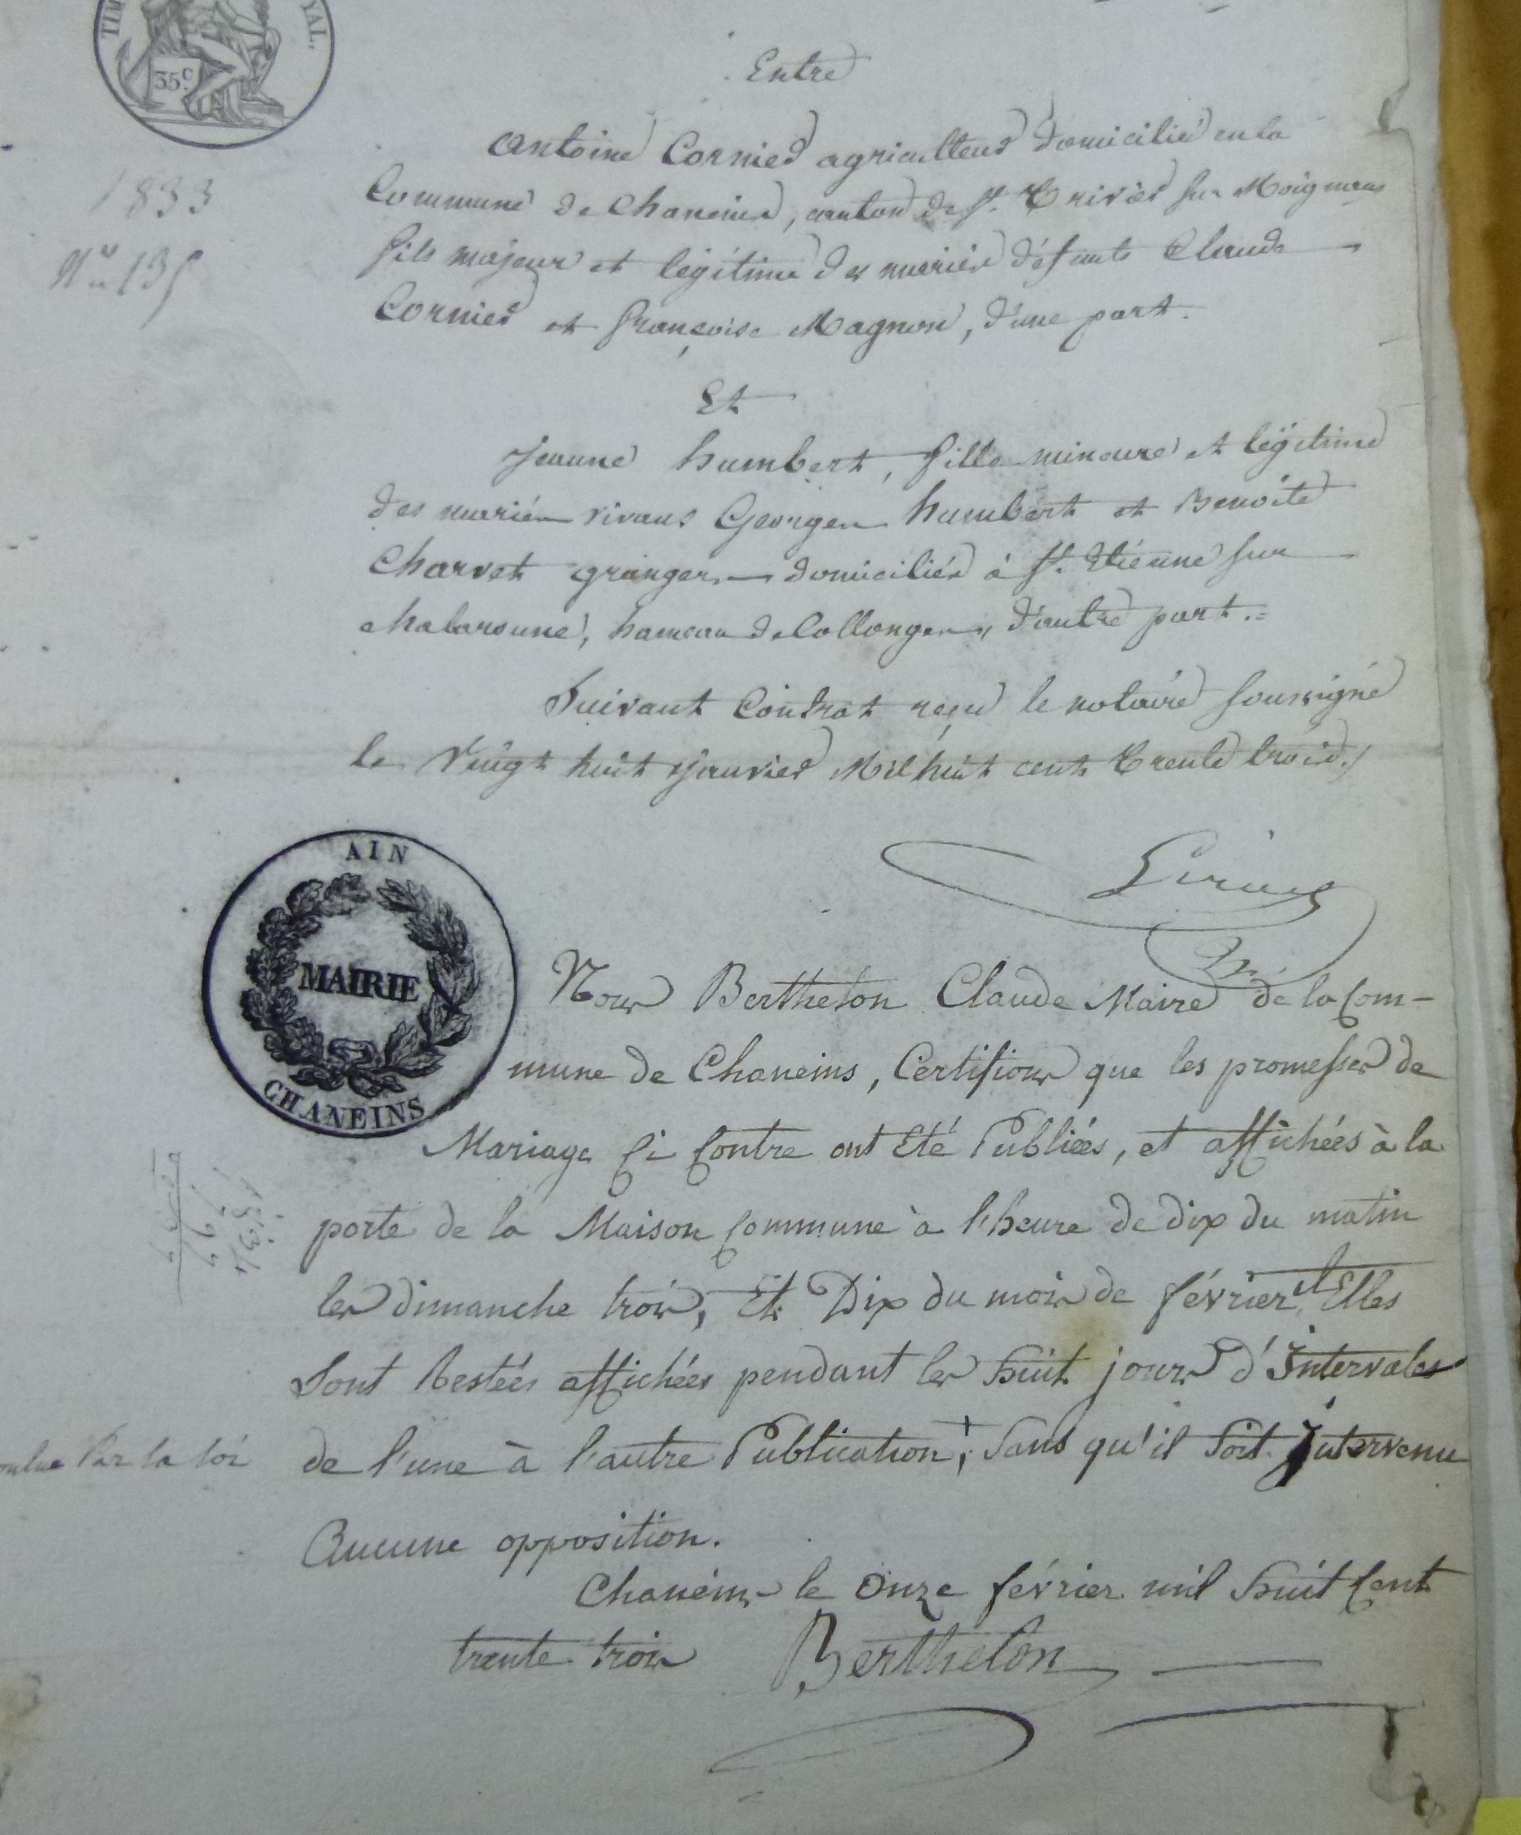 TIM YAL.
35c.
Entre
Antoine Cornier agriculteur domicilié en la
Commune de Chaneins, canton de St. Trivier sur Moignans
fils majeur et légitime des mariés défunts Claude
Cornier et françoise Magnon, d'une part.
1833
No 135
Et
jeanne humbert, fille mineure et légitime
des mariés vivans Georges humbert et Benoîte
Charvet grangers domiciliés à St. Etienne sur
chalaronne, hameau de Collonges, d'autre part.=
Suivant Contrat reçu le notaire soussigné
le Vingt huit janvier Mil huit cent Trente trois./
AIN
MAIRIE
CHANEINS
Nous Berthelon Claude Maire de la Com-
mune de Chaneins, Certifions que les promesses de
Mariage Ci Contre ont Eté Publiées, et affichées à la
porte de la Maison Commune à l'heure de dix du matin
les dimanche trois, Et Dix du mois de février, et Elles
Sont Restées affichées pendant les huit jours d'Intervales
de l'une à l'autre Publication +, Sans qu'il Soit Intervenu
Par la loi
Aucune opposition.
Chaneins le Onze février mil huit Cent
trente trois Berthelon